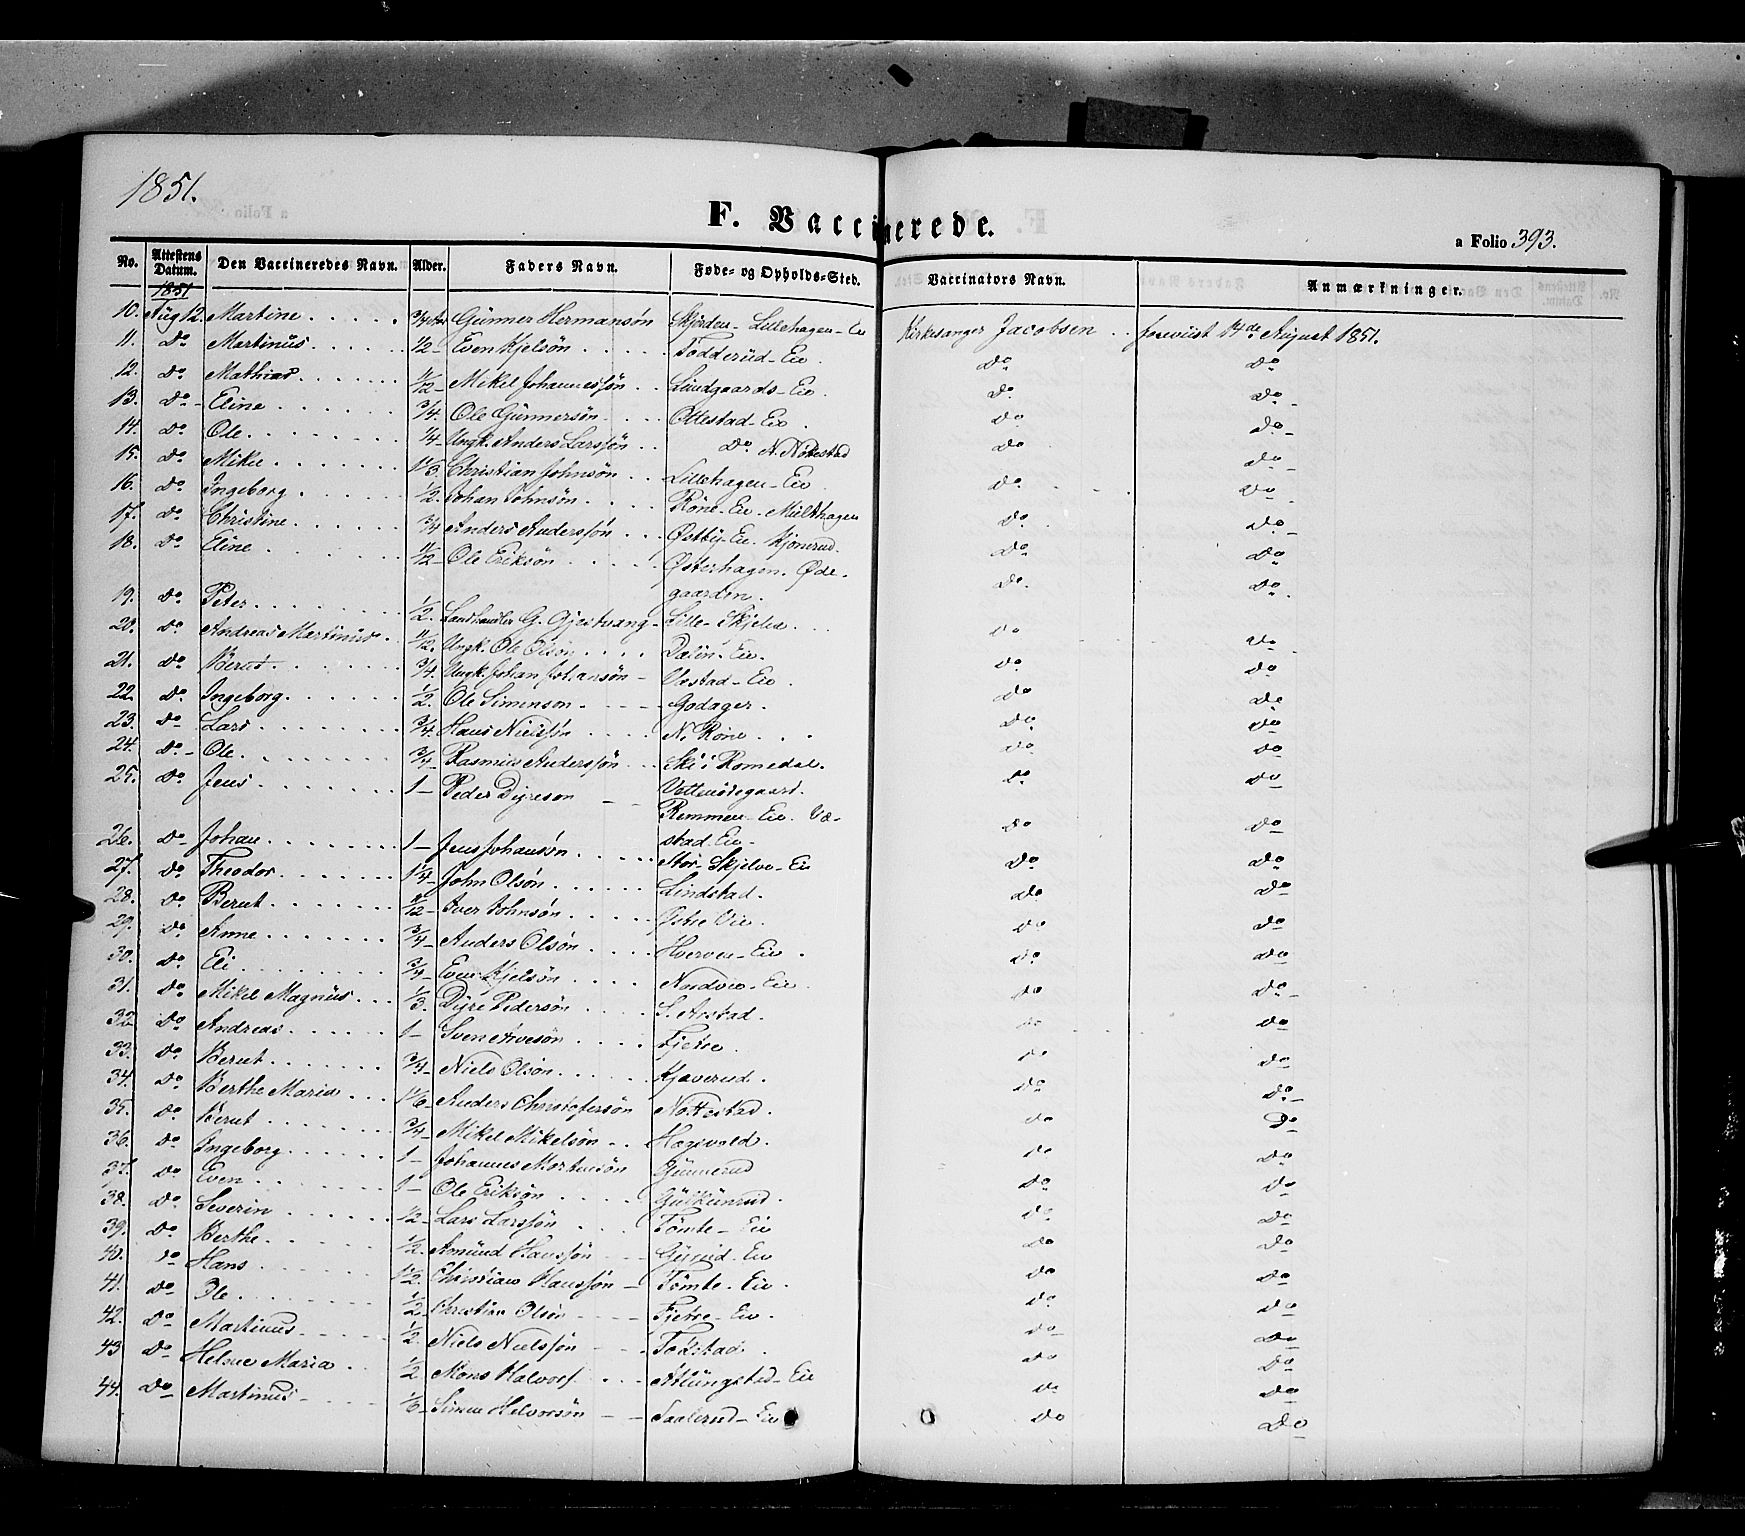 1851.
F. Vaccinerede.
a Folio 393.
No. Attestens Datum. Den Vaccineredes Navn. Alder. Faders Navn. Føde- og Opholds-Sted. Vaccinators Navn. Anmærkninger.
1851
10. Aug 12. Martine 3/4 Aar Gunner Hermansön Skjörden- Lillehagen-Eie Kirkesanger Jacobsen foreviist 14de August 1851.
11. Do Martinus 1/2- Even Kjelsön Todderud-Eie. Do Do
12. Do Mathias Mikel Johannessön Lundgaards-Eie. Do Do
13. Do- Eline 3/4. Ole Gunnersön Ottestad-Eie. Do Do-
14. Do Ole 1/4- Ungk. Anders Larssön Do N. Nötestad Do Do-
15. Do 1 1/3 Christian Johnsön Lillehagen-Eie Do Do
16. Do Ingeborg 1/2. Johan Johnsön Röne-Eie- Do Do-
17. Do Christine 3/4 Anders Anderssön Østby-Eie. Kjonerud. Do Do
18. Do Eline Ole Eriksön Østerhagen. Øde- Do Do.
gaarden.
19. Do Peter 1/2. Landhandler G. Gjestvang- Lille-Skjelve. Do Do
20. Do Andreas Martinus Ungk. Ole Olson Dalin-Eie. Do Do
21. Do Berut 3/4. Ungk. Johan Johansön- Vestad-Eie. Do Do
22. Do Ingeborg. 1/2. Ole Simenson Godager. Do Do
23. Do Lars 3/4. Hans Nielssön N. Röne Do Do
24. Do- Ole 3/4- Rasmus Anderssön Ski i Romedal. Do Do
25. Do Jens 1- Peder Dyreson Vollensdegaard. Do Do
Remmen-Eie. Væ-
26. Do Johan 1- Jens Johansön stad-Eie. Do Do
27. Do Theodor 1 1/4- John Olsön Stor-Skjelve-Eie Do Do
28. Do Berut Iver Johnsön Lindstad. Do Do
29. Do Anne 3/4- Anders Olsön Østre Vie. Do Do
30. Do Eli 3/4- Even Kjelsön Hverven-Eie. Do Do-
31. Do Mikel Magnus 1/3. Dyre Pedersön Nordvie-Eie. Do Do
32. Do Andreas 1- S. Arstad. Do Do
33. Do Berut 3/4- Niels Olsön Fjetre. Do Do-
34. Do Berthe Maria 1 1/6- Anders Christofersön Kjaverud. Do Do
35. Do Berut 3/4- Mikel Mikelsön Nöttestad. Do Do
36. Do Ingeborg 1- Johannes Mortensön Hagevold. Do Do
37. Do Even 1- Ole Eriksön Gunnerud Do Do
38. Do Severin 1/2- Lars Larssön Gulkünrud. Do Do
39. Do Berthe. 1/2. Amund Hanssön Tömte-Eie Do Do
40. Do Hans 1 1/2. Christian Hanssön Gyrud-Eie Do Do
41. Do Ole. 1/2- Christian Olsön Tömte-Eie. Do Do
42. Do Martinus 1/2. Niels Nielssön Fjetre-Eie. Do Do
43 Do Helene Maria 1/2 Mons Halvors Tokstad. Do Do
44. Do Martinus 1/6- Simen Halvorsön Atlungstad-Eie Do Do
Saalerud-Eie